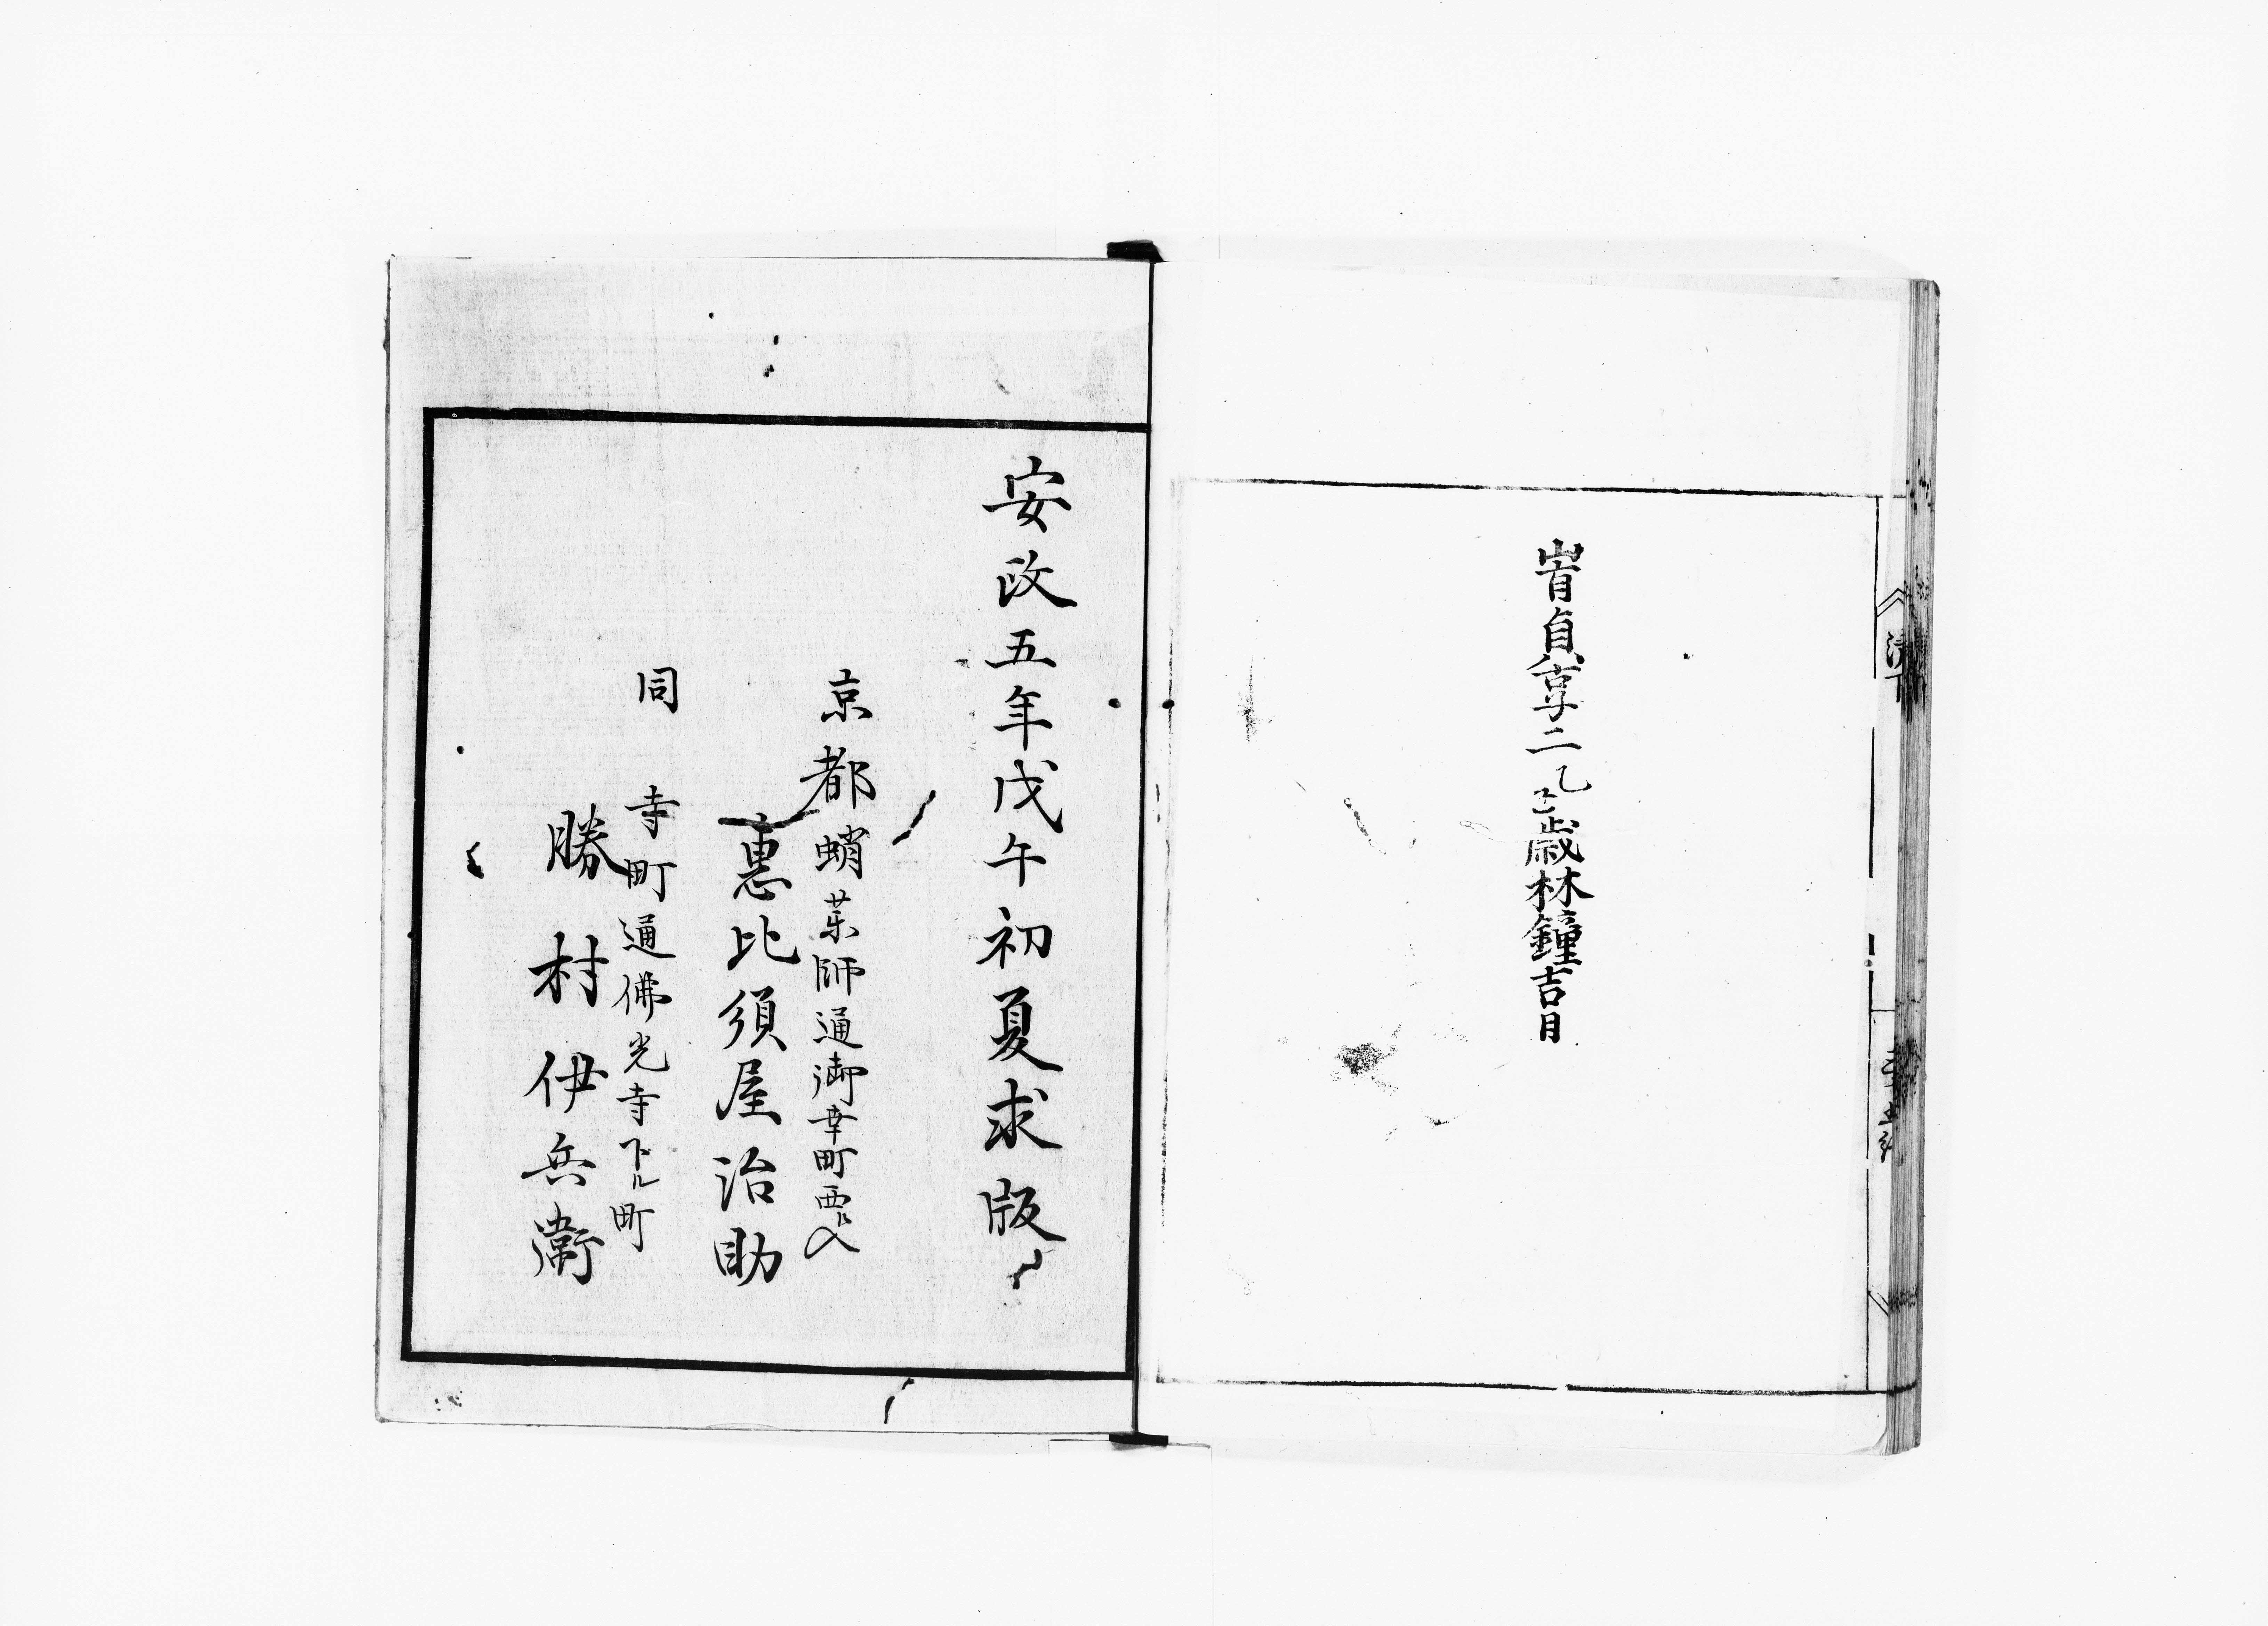 旹貞享二乙丑歳林鐘吉月
安政五年戊午初夏求版
京都 蛸薬師通御幸町西入
惠比須屋治助
同 寺町通佛光寺下ル町
勝村伊兵衛